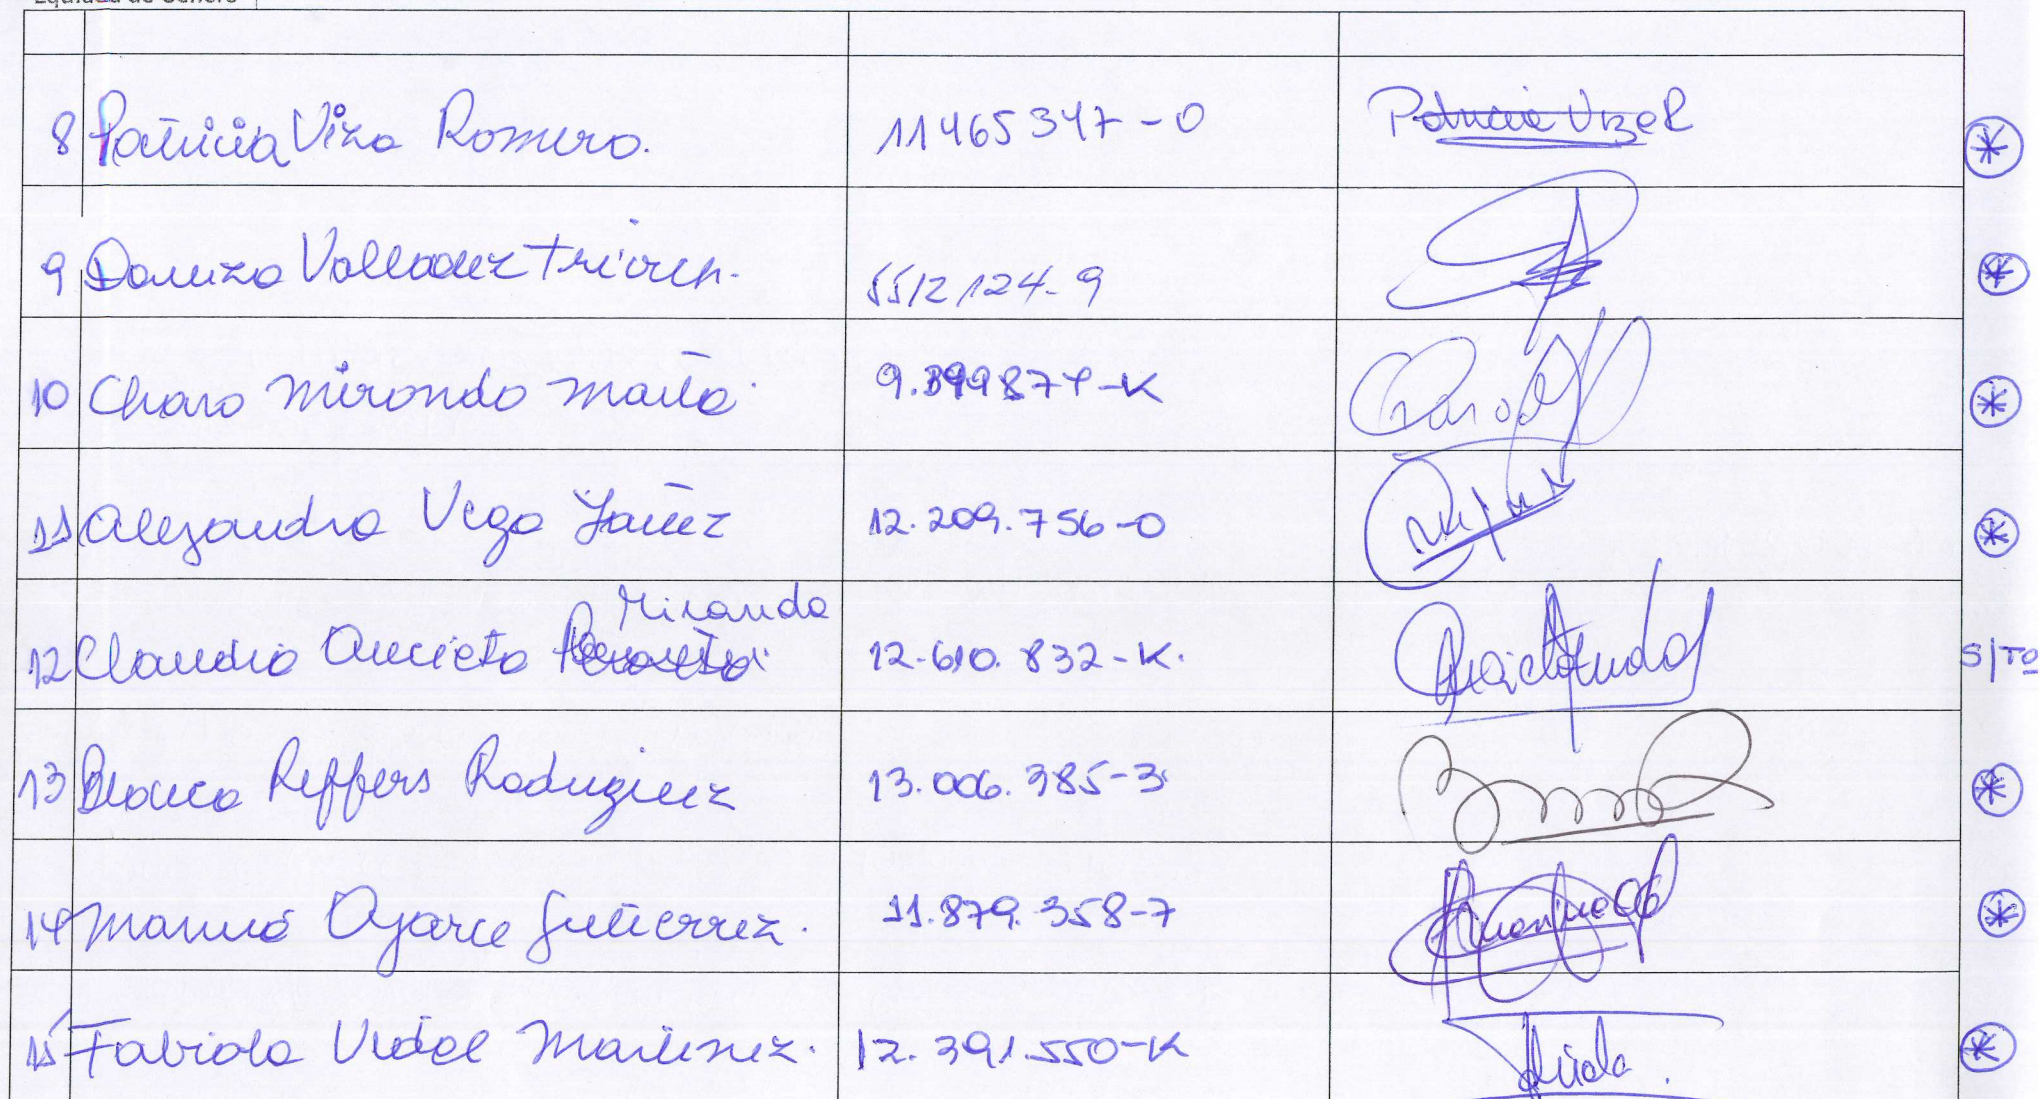 Equidad de Género
8 Patricia Viza Romero. 11465347-0 Patricia Viza R
9 Daniza Valladez Trivich. 5512124-9
10 Charo Mirando Maita 9.399874-K Charo
11 Alejandra Vega Yañez 12.209.756-0
Miranda
12 Claudio Aniceto 12.610.832-K. S/TO
13 Blanca Reffers Rodriguez 13.006.385-3
14 Marina Oyarce Gutierrez. 11.879.358-7
15 Fabiola Vidal Martinez. 12.391.550-K